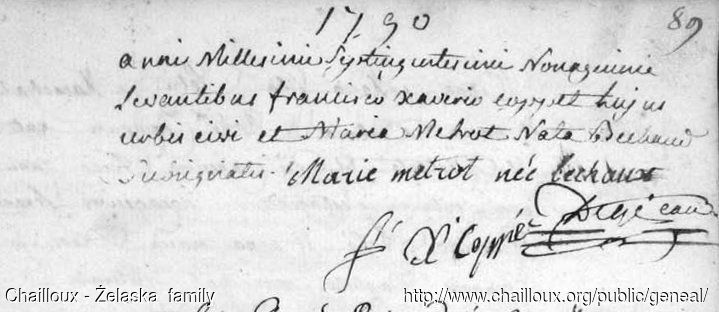 1790 89
anni Millesimi Septingentesimi Nonagesimi
Levantibus francisco Xaverio coppet hujus
urbis civi et Maria Metrot Nata Bechaud
Marie metrot née bechaux
fr X coppet
Chailloux - Żelaska family http://www.chailloux.org/public/geneal/